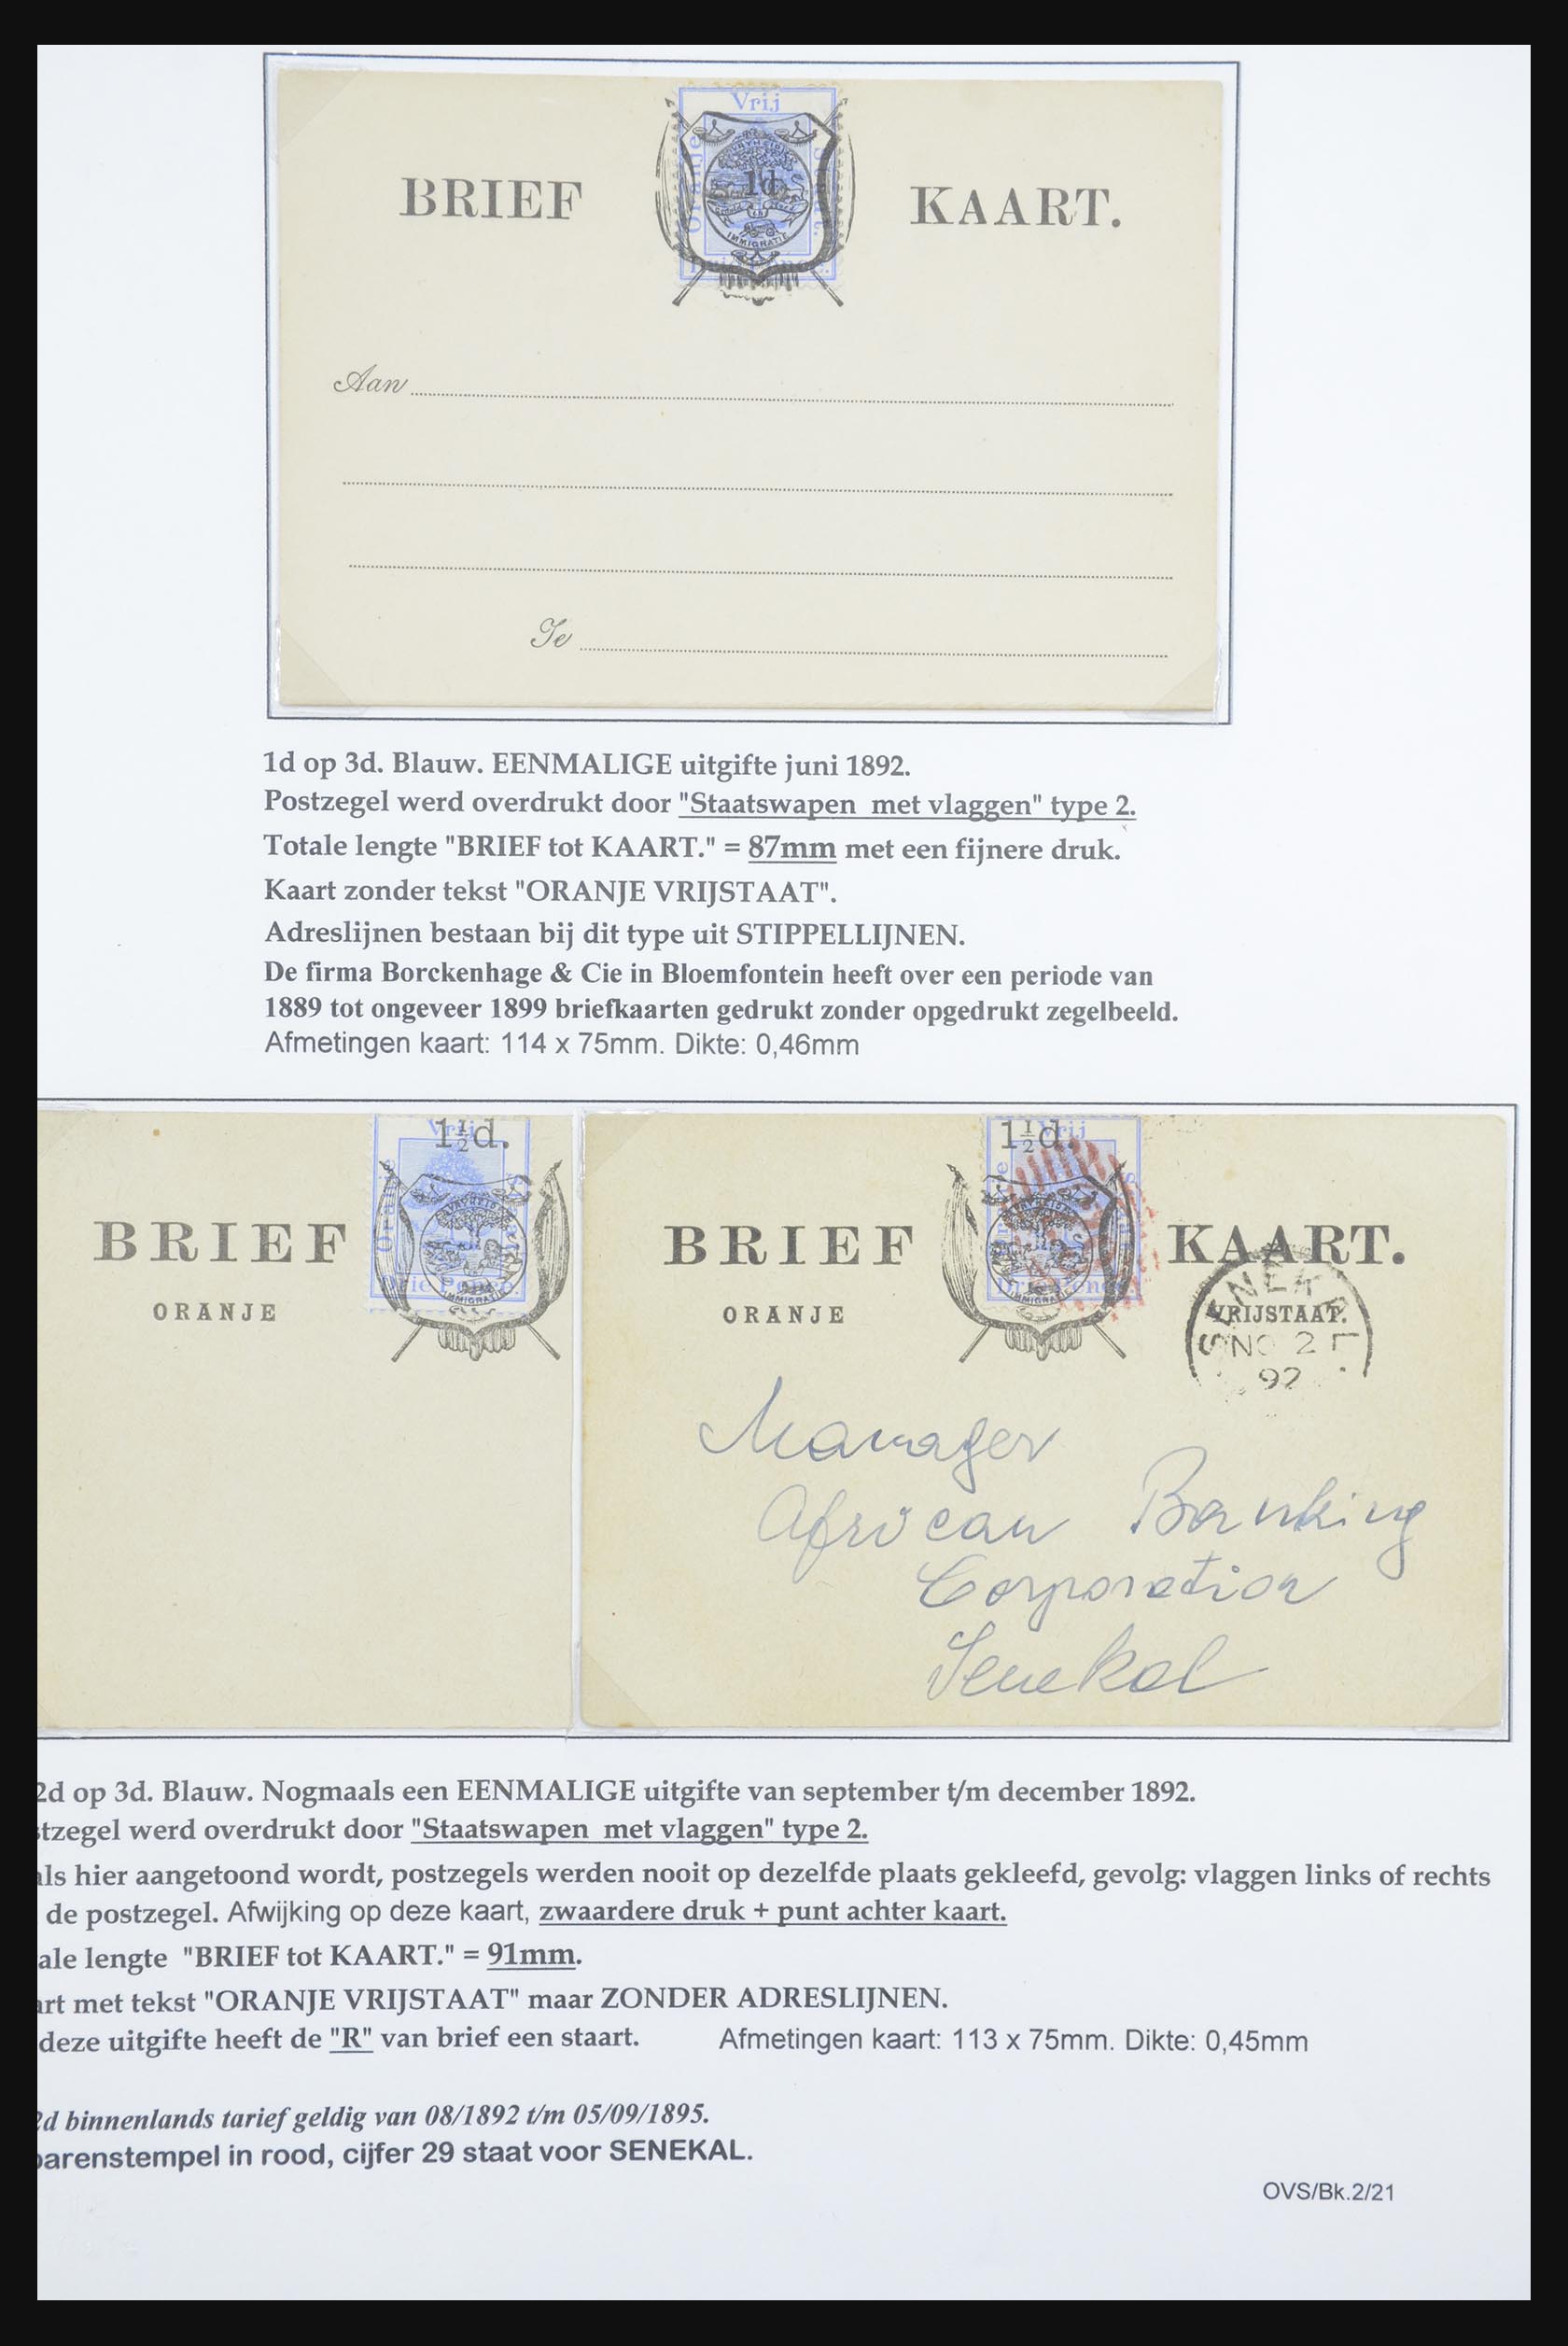 Vrij
Oranje
1d
IMMIGRATIE
BRIEF KAART.
Aan
Te
1d op 3d. Blauw. EENMALIGE uitgifte juni 1892.
Postzegel werd overdrukt door "Staatswapen met vlaggen" type 2.
Totale lengte "BRIEF tot KAART." = 87mm met een fijnere druk.
Kaart zonder tekst "ORANJE VRIJSTAAT".
Adreslijnen bestaan bij dit type uit STIPPELLIJNEN.
De firma Borckenhage & Cie in Bloemfontein heeft over een periode van
1889 tot ongeveer 1899 briefkaarten gedrukt zonder opgedrukt zegelbeeld.
Afmetingen kaart: 114 x 75mm. Dikte: 0,46mm
1½d.
Vrij
IMMIGRATIE
BRIEF
ORANJE
1½d.
Vrij
IMMIGRATIE
BRIEF KAART.
ORANJE VRIJSTAAT.
SENEKAL
NO 2
92
Manager
African Banking
Corporation
Senekal
2d op 3d. Blauw. Nogmaals een EENMALIGE uitgifte van september t/m december 1892.
stzegel werd overdrukt door "Staatswapen met vlaggen" type 2.
als hier aangetoond wordt, postzegels werden nooit op dezelfde plaats gekleefd, gevolg: vlaggen links of rechts
de postzegel. Afwijking op deze kaart, zwaardere druk + punt achter kaart.
ale lengte "BRIEF tot KAART." = 91mm.
art met tekst "ORANJE VRIJSTAAT" maar ZONDER ADRESLIJNEN.
deze uitgifte heeft de "R" van brief een staart. Afmetingen kaart: 113 x 75mm. Dikte: 0,45mm
2d binnenlands tarief geldig van 08/1892 t/m 05/09/1895.
barenstempel in rood, cijfer 29 staat voor SENEKAL.
OVS/Bk.2/21